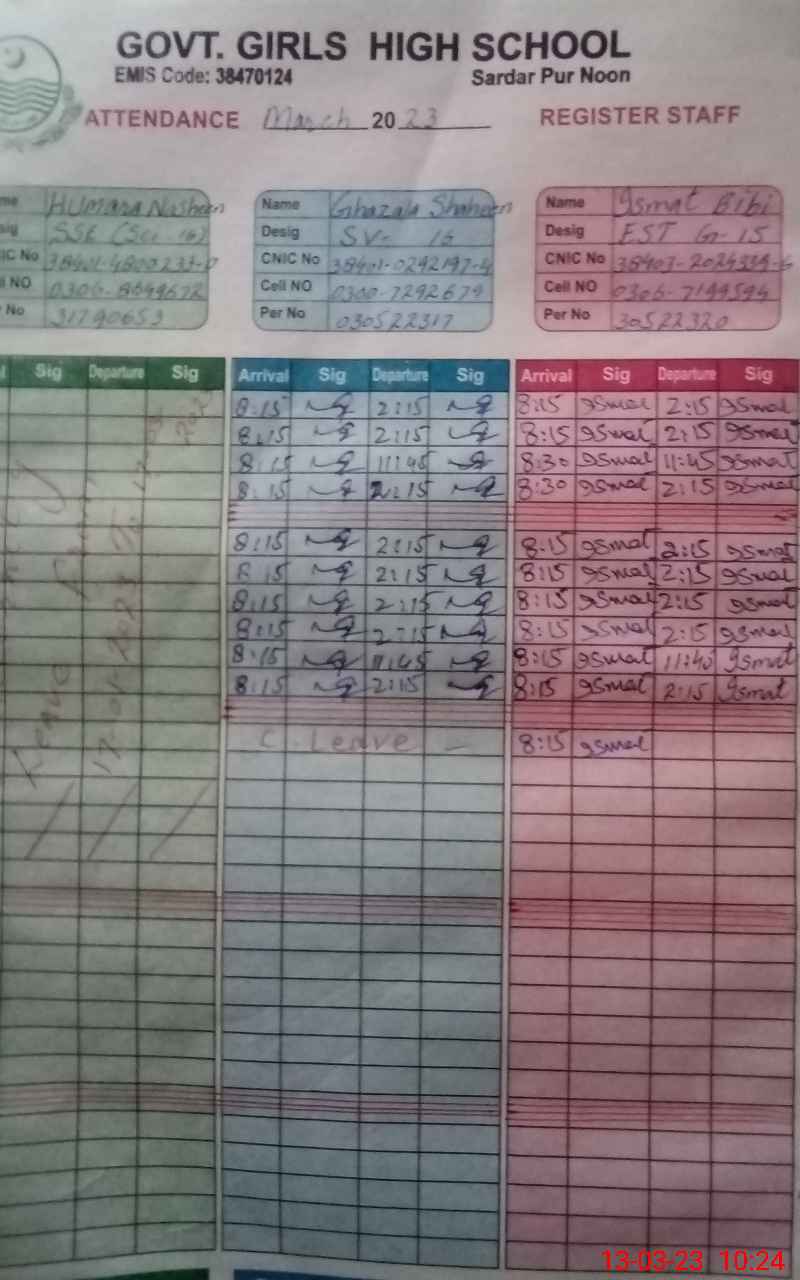 GOVT. GIRLS HIGH SCHOOL
EMIS Code: 38470124 Sardar Pur Noon
ATTENDANCE March 2023 REGISTER STAFF
me Humara Nosheen
sig SSE (Sci 16)
IC No
ll NO 0306-8699672
No 31790653
Name Ghazala Shaheen
Desig SV- 16
CNIC No 38401-0292197-4
Cell NO 0300-7292679
Per No 030522317
Name Ismat Bibi
Desig EST G-15
CNIC No 38403-2024334-6
Cell NO 0306-7199594
Per No 30522320
Sig Departure Sig Arrival Sig Departure Sig Arrival Sig Departure Sig
8:15 2:15 8:15 Ismat 2:15 Ismat
8:15 2:15 8:15 Ismat 2:15 Ismat
8:15 11:45 8:30 Ismat 11:45 Ismat
8:15 2:15 8:30 Ismat 2:15 Ismat
8:15 2:15 8:15 Ismat 2:15 Ismat
8 15 2:15 8:15 Ismat 2:15 Ismat
8:15 2:15 8:15 Ismat 2:15 Ismat
8:15 2:15 8:15 Ismat 2:15 Ismat
8:15 11:45 8:15 Ismat 11:40 Ismat
8:15 2:15 8:15 Ismat 2:15 Ismat
C. Leave 8:15 Ismat
Leave
13-03-23 10:24